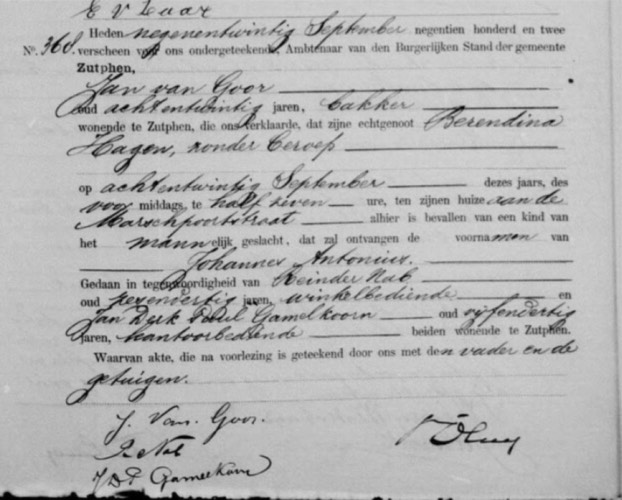 E v Laar
Heden negenentwintig September negentien honderd en twee
No. 368. verscheen voor ons ondergeteekende, Ambtenaar van den Burgerlijken Stand der gemeente
Zutphen,
Jan van Goor
oud achtentwintig jaren, bakker
wonende te Zutphen, die ons verklaarde, dat zijne echtgenoot Berendina
Hagen, zonder beroep
op achtentwintig September dezes jaars, des
voor middags, te half zeven ure, ten zijnen huize aan de
Marschpoortstraat alhier is bevallen van een kind van
het mannelijk geslacht, dat zal ontvangen de voornamen van
Johannes Antonius.
Gedaan in tegenwoordigheid van Reinder Nab
oud zezendertig jaren, winkelbediende en
Jan Derk Paul Gamelkoorn oud vijfendertig
jaren, kantoorbediende beiden wonende te Zutphen.
Waarvan akte, die na voorlezing is geteekend door ons met den vader en de
getuigen.
J. Van Goor.
R Nab
J D P Gamelkoorn